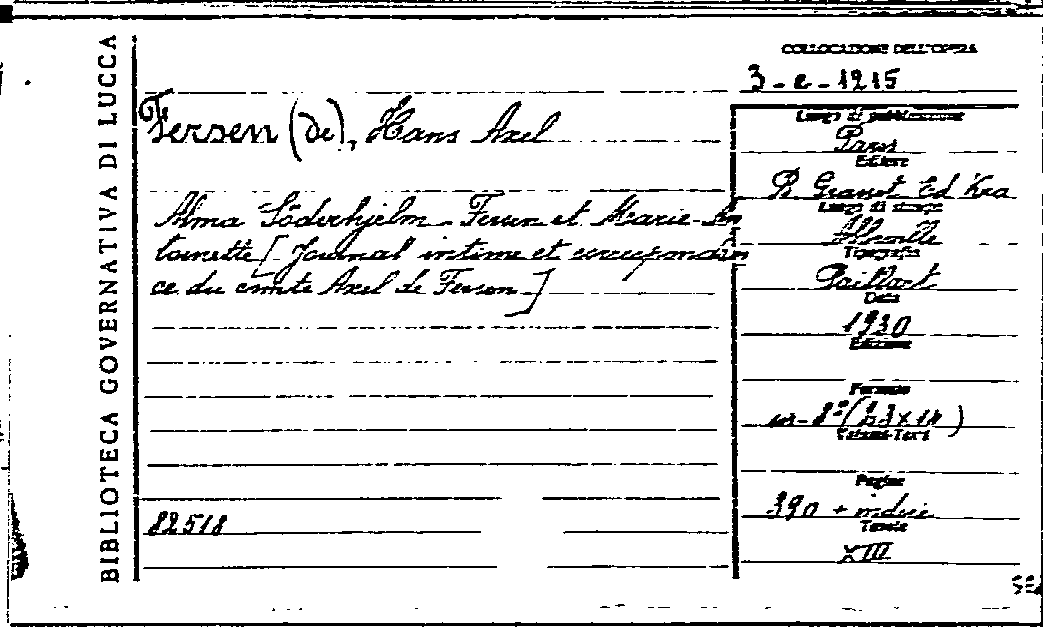 BIBLIOTECA GOVERNATIVA DI LUCCA
COLLOCAZIONE DELL'OPERA
3-e-1215
Fersen (de), Hans Axel
Alma Söderhjelm - Fersen et Marie-An
toinette [Journal intime et correspondan
ce du comte Axel de Fersen-]
82518
Luogo di pubblicazione
Paris
Editore
Ed Kra
Luogo di stampa
Abbeville
Tipografia
Paillart
Data
1930
Edizione
Formato
in-8°(23x14)
Volumi-Tomi
Pagine
390 + indice
Tavole
XIII